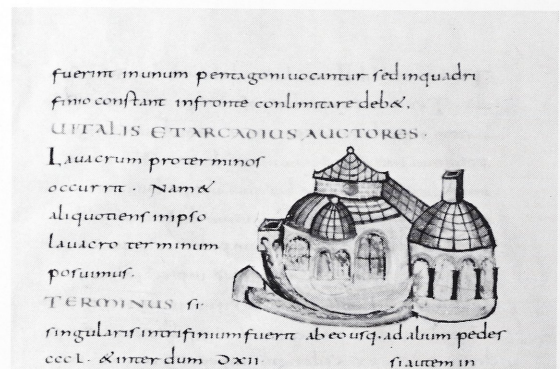 fuerint inunum pentagoni uocantur sed inquadri
finio constant infronte conlimitare deb&.
UITALIS ET ARCADIUS AUCTORES.
Lauacrum pro ter minos
occurrit. Nam &
aliquotiens inipso
lauacro ter minum
posuimus.
TERMINUS si
singularis intrifinium fuerit ab eo usq. ad alium pedes
cccL. & inter dum Dxii si autem in